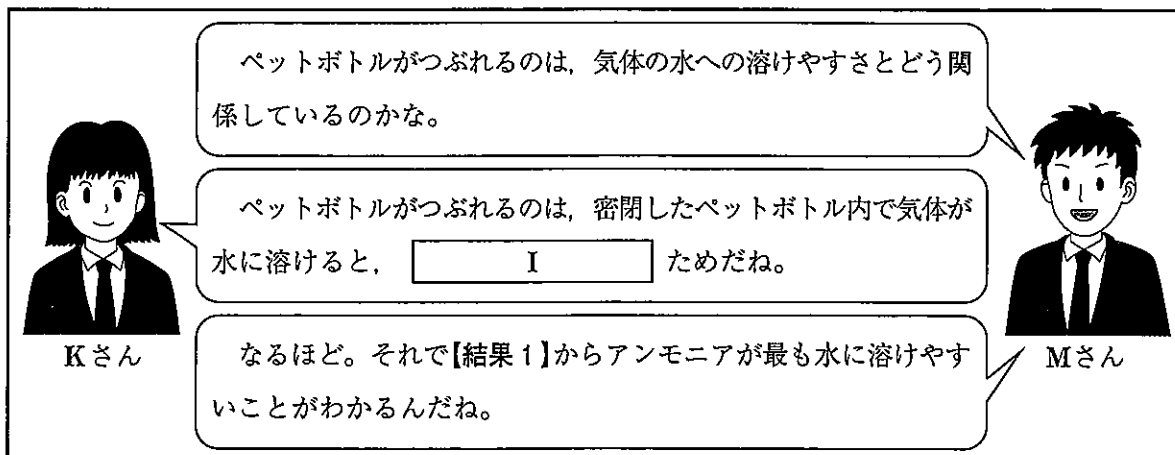 ペットボトルがつぶれるのは，気体の水への溶けやすさとどう関
係しているのかな。
ペットボトルがつぶれるのは，密閉したペットボトル内で気体が
水に溶けると， I ためだね。
Kさん
なるほど。それで【結果1】からアンモニアが最も水に溶けやす
いことがわかるんだね。
Mさん